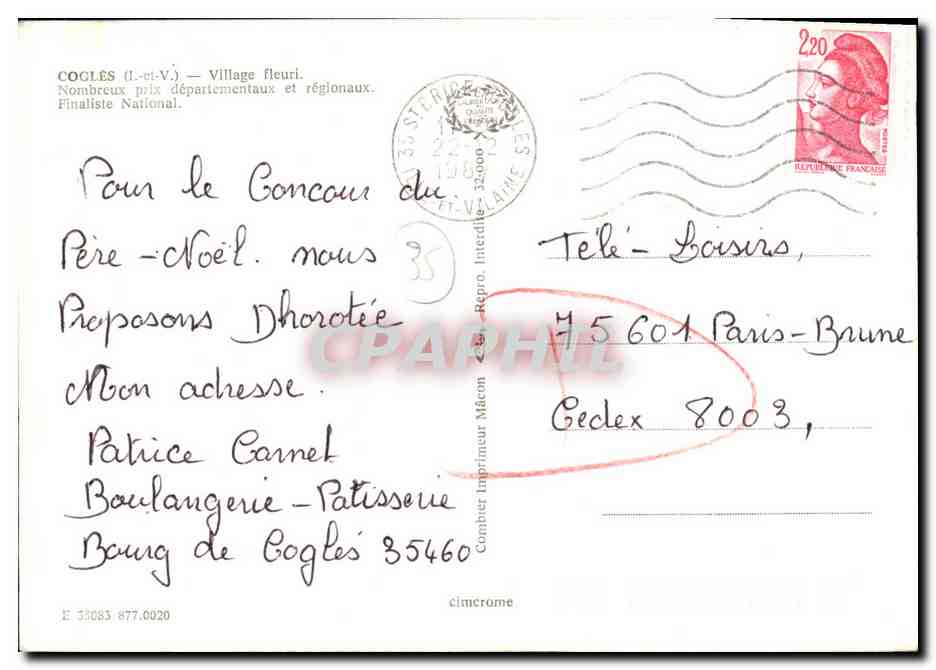 COGLÈS (I.-et-V.) — Village fleuri.
Nombreux prix départementaux et régionaux.
Finaliste National.
Pour le Concour du
Père-Noël. nous
Proposons Dhorotée
Mon adresse.
Patrice Carnet
Boulangerie-Patisserie
Bourg de Coglés 35460
E 35083 877.0020
35
Combier Imprimeur Mâcon
Repro. Interdite 32.000
cimcrome
22-12
ET-VILAINE
2,20
POSTES
REPUBLIQUE FRANÇAISE
Télé-Loisirs,
75601 Paris-Brune
Cedex 8003,
CPAPHIL